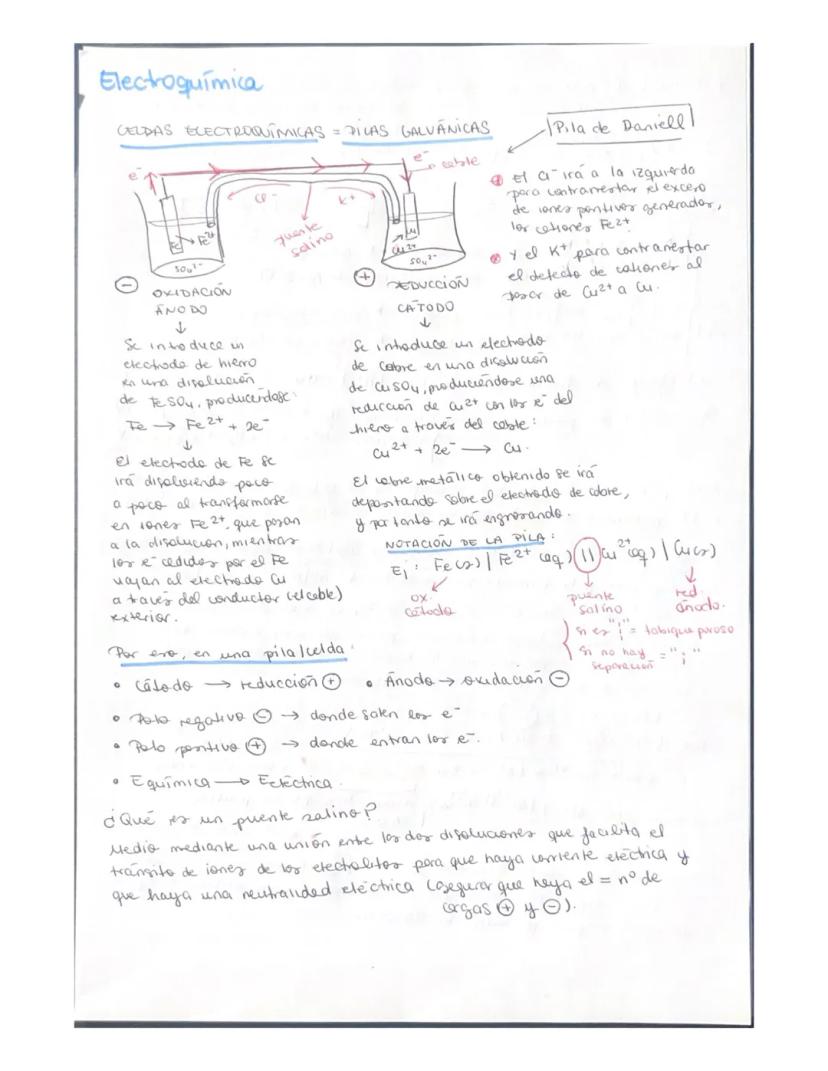 Electroquímica
CELDAS ELECTROQUÍMICAS = PILAS GALVÁNICAS
Pila de Daniell
e⁻
e⁻
cable
Cl⁻
K⁺
puente
salino
Fe
Fe²⁺
Cu²⁺
SO₄²⁻
SO₄²⁻
El Cl⁻ irá a la izquierda
para contrarrestar el exceso
de iones positivos generados,
los cationes Fe²⁺
Y el K⁺ para contrarrestar
el defecto de cationes al
pasar de Cu²⁺ a Cu.
⊖
OXIDACIÓN
ÁNODO
↓
Se introduce un
electrodo de hierro
en una disolución
de FeSO₄, produciéndose:
Fe → Fe²⁺ + 2e⁻
↓
El electrodo de Fe se
irá disolviendo poco
a poco al transformarse
en iones Fe²⁺, que pasan
a la disolución, mientras
los e⁻ cedidos por el Fe
vayan al electrodo Cu
a través del conductor (el cable)
exterior.
⊕
REDUCCIÓN
CÁTODO
↓
Se introduce un electrodo
de cobre en una disolución
de CuSO₄, produciéndose una
reducción de Cu²⁺ con los e⁻ del
hierro a través del cable:
Cu²⁺ + 2e⁻ → Cu.
El cobre metálico obtenido se irá
depositando sobre el electrodo de cobre,
y por tanto se irá engrosando.
NOTACIÓN DE LA PILA:
Ej: Fe(s) | Fe²⁺ (aq) || Cu²⁺(aq) | Cu(s)
ox.
cátodo
puente
salino
red.
ánodo.
Si es "¦" = tabique poroso
Si no hay
separación = ";"
Por eso, en una pila/celda:
• Cátodo → reducción ⊕ • Ánodo → oxidación ⊖
• Polo negativo ⊖ → donde salen los e⁻
• Polo positivo ⊕ → donde entran los e⁻.
• Equímica → Eeléctrica.
¿Qué es un puente salino?
Medio mediante una unión entre las dos disoluciones que facilita el
tránsito de iones de los electrolitos para que haya corriente eléctrica y
que haya una neutralidad eléctrica (asegurar que haya el = nº de
cargas ⊕ y ⊖).